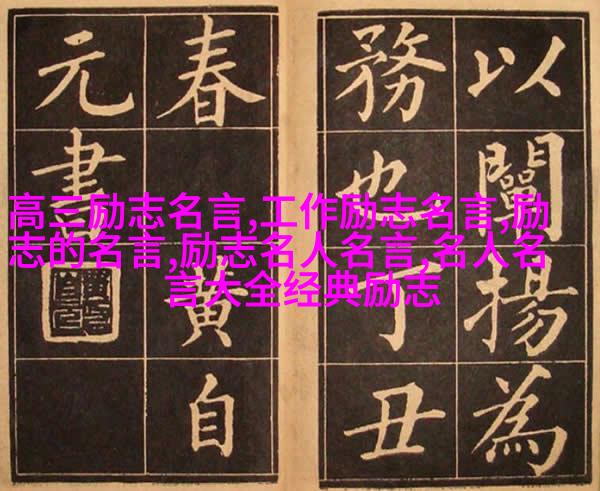 以闡揚為
務也丁丑
春黃自
元書
高三励志名言,工作励志名言,励
志的名言,励志名人名言,名人名
言大全经典励志